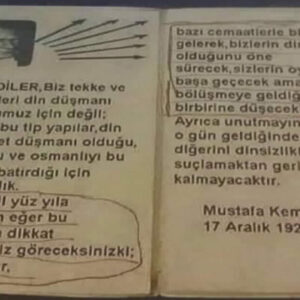 DİLER,Biz tekke ve
leri din düşmanı
umuz için değil;
bu tip yapılar,din
et düşmanı olduğu,
u ve osmanlıyı bu
batırdığı için
lık.
l yüz yıla
n eğer bu
e dikkat
iz göreceksinizki;
r,
bazı cemaatlerle bi
gelerek,bizlerin di
olduğunu öne
sürecek,sizlerin oy
başa geçecek ama
bölüşmeye geldiğ
birbirine düşecek
Ayrıca unutmayın
o gün geldiğinde
diğerini dinsizlikt
suçlamaktan geri
kalmayacaktır.
Mustafa Kem
17 Aralık 192